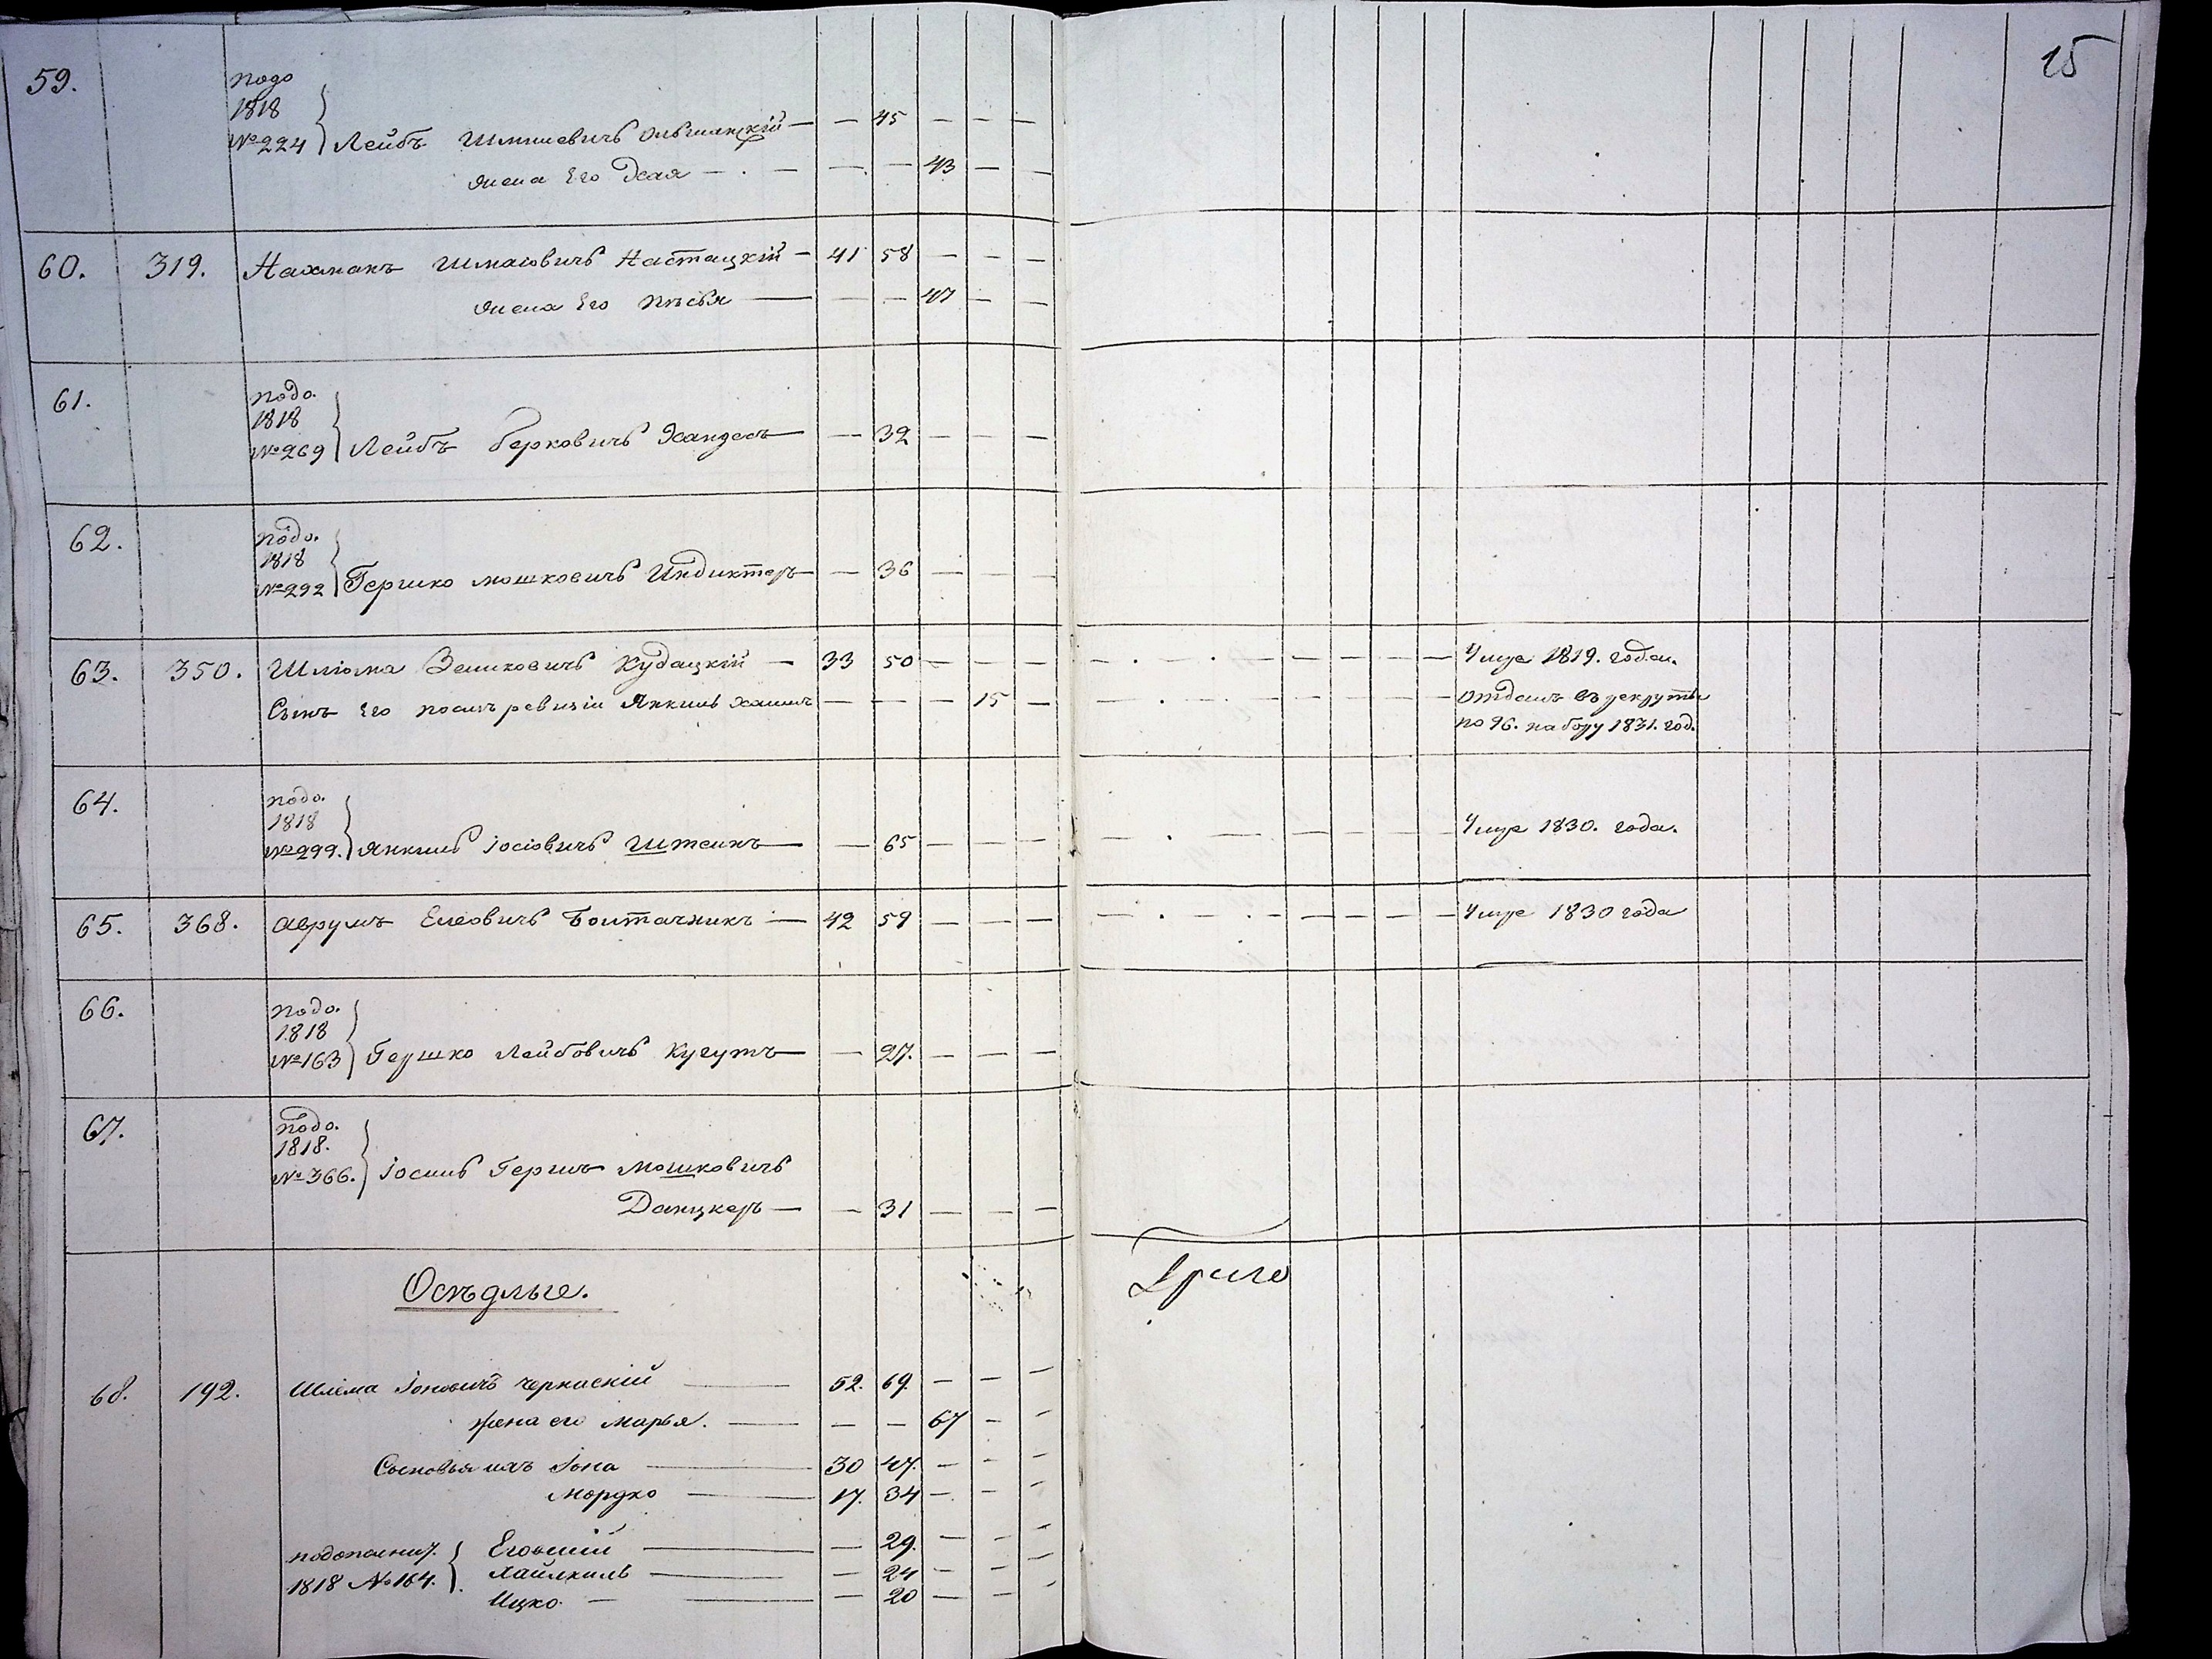 15
59. подо
1818
№224 Лейбъ Шмілевичъ Ольшанскій — — 45 — — —
жена Его Хая — — — 43 — —
60. 319. Нахманъ Шмаіовичъ Настацкій — 41 58 — — —
жена Его Песья — — — 47 — —
61. подо.
1818
№269 Лейбъ Берковичъ — — 32 — — —
62. подо.
1818
№292 Гершко Мошковичъ Индиктеръ — — 36 — — —
63. 350. Шліома Зельковичъ Кудацкій — 33 50 — — — Умре 1819. года.
Сынъ Его послѣ ревизіи Янкель Хаимъ — — — 15 — отданъ въ рекруты
по 96. набору 1831. год.
64. подо.
1818
№299. Янкель Іосіовичъ Штеинъ — — 65 — — — Умре 1830. года.
65. 368. Аврумъ Елеовичъ — 42 59 — — — Умре 1830 года
66. подо.
1818
№163 Гершко Лейбовичъ Кугутъ — — 27. — — —
67. подо.
1818.
№366. Іосипъ Гершъ Мошковичъ
Данцкеръ — — 31 — — —
Осѣдлые.
68. 192. Шлема Іоновичъ Черкаскій — 52. 69. — — —
жена его Марья. — — — 67 — —
Сыновья ихъ Іона — 30 47. — — —
Мордко — 17. 34 — — —
подополнит.
1818 №164.
— — 29. — — —
— — 24 — — —
Ицко — — 20 — — —